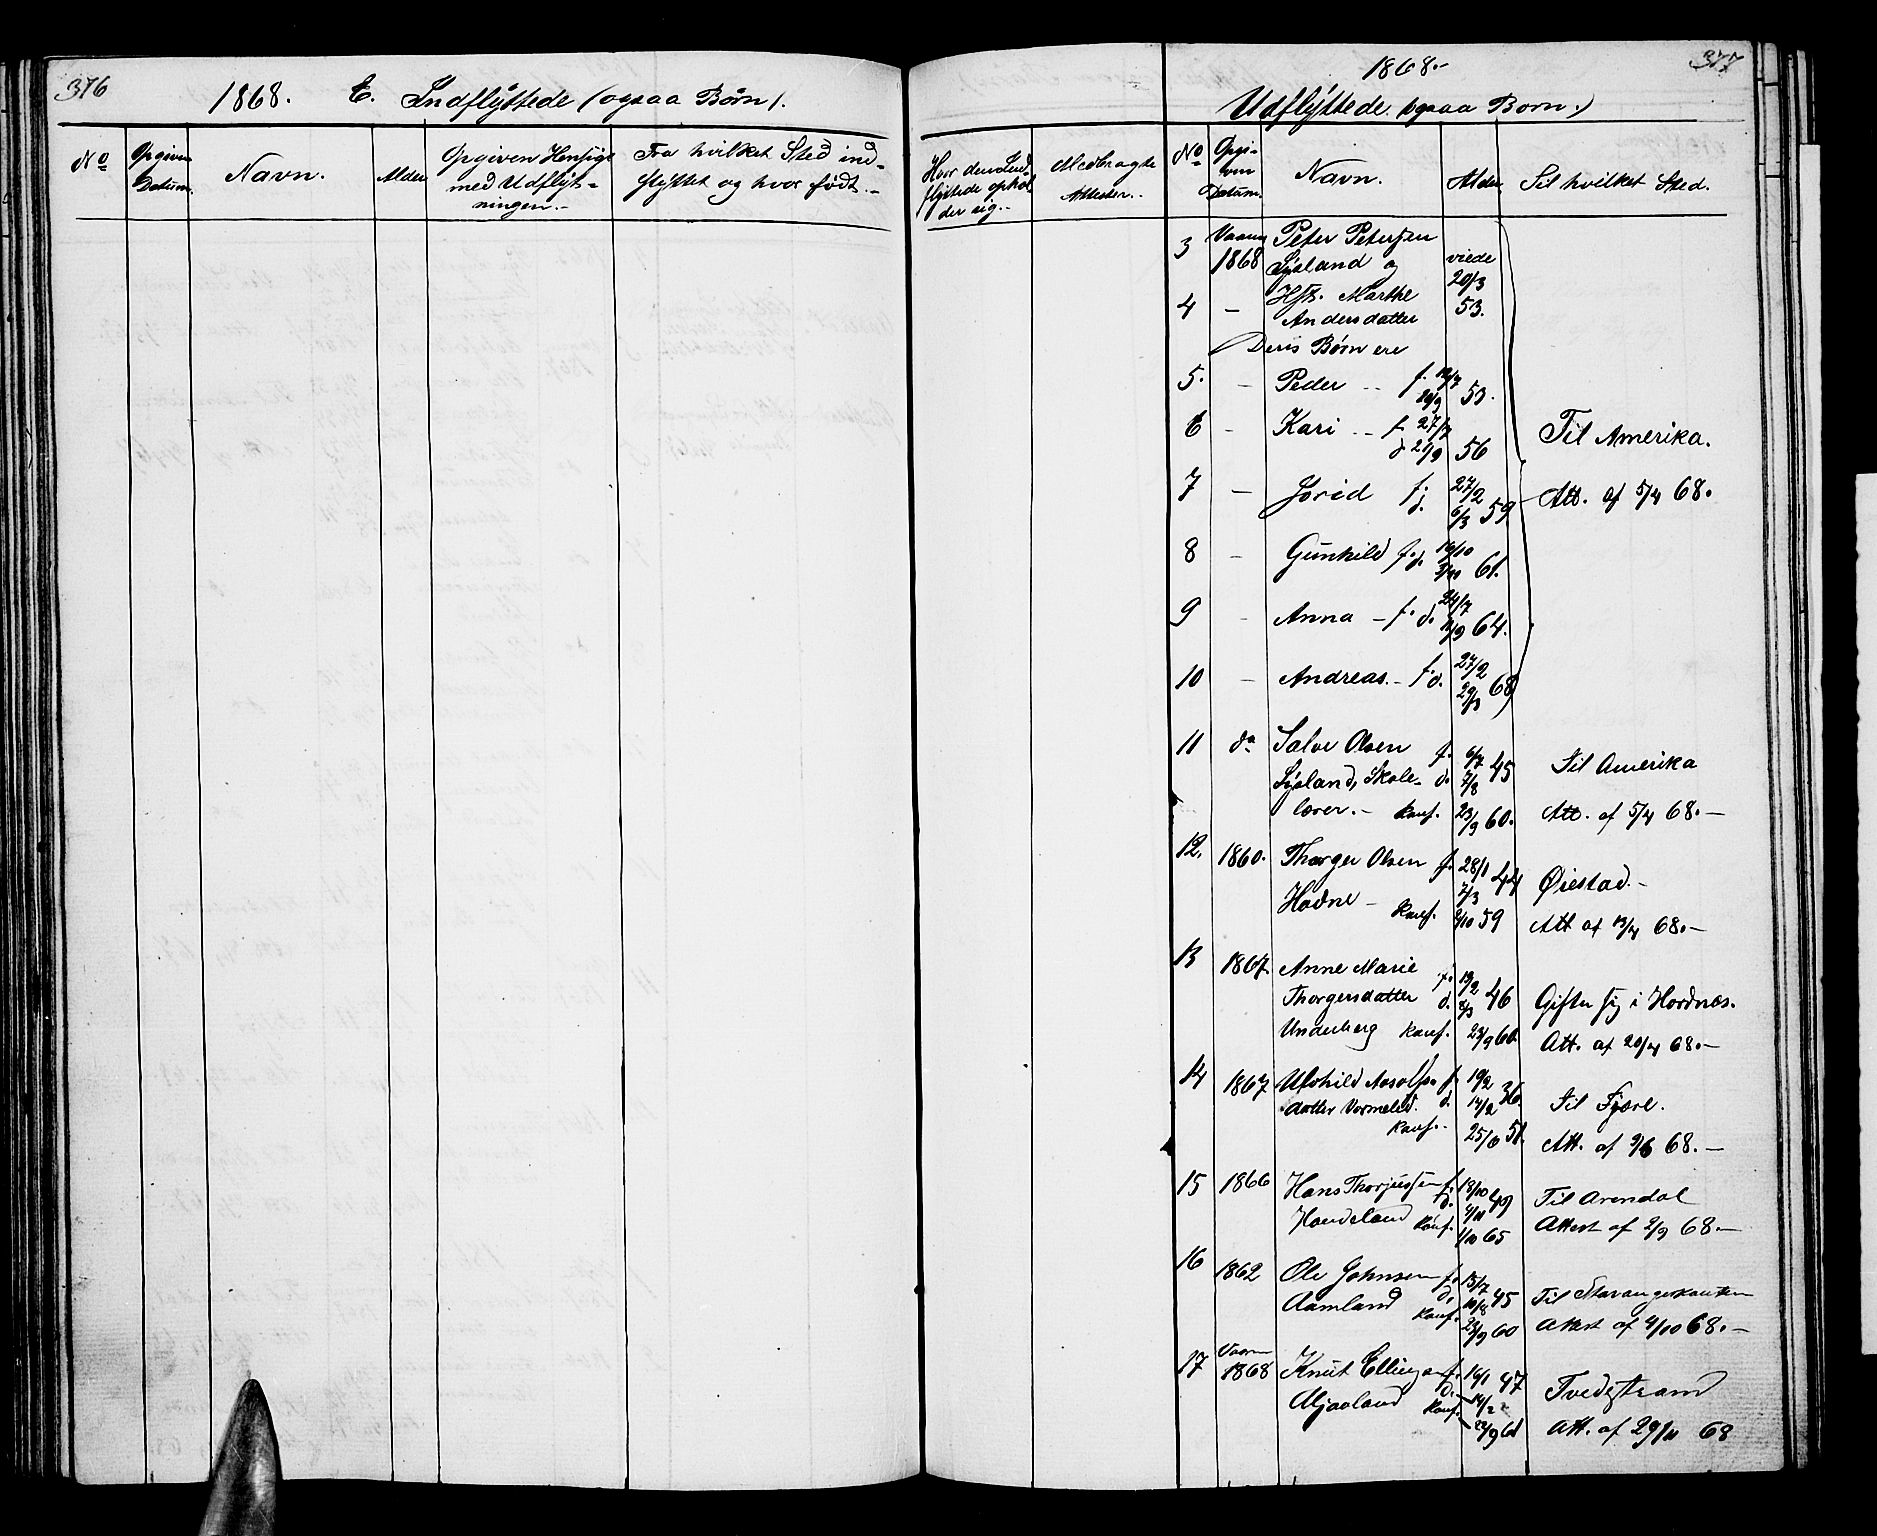 376
1868. E. Indflyttede (ogsaa Børn).
No
Opgiven Datum.
Navn.
Alder
Opgiven Hensigt med Udflytningen.-
Fra hvilket Sted indflyttet og hvor født.-
377
1868.-
Udflyttede. (ogsaa Børn.)
Hvor den Indflyttede opholder sig.-
Medbragte Attester.-
No
Opgiven Datum.
Navn.
Alder
Til hvilket Sted.
3 Vaaren Peter Petersen
1868 Lysland og viede
20/3
4 - Hst. Marthe 53.
Andersdatter
Deris Børn ere
5. - Peder -- f. 12/7
53.
6 - Kari -- f. 27/7
d 21/9 56
Til Amerika.
7 - Jorid f. 27/2
d. 6/3 59
Att. af 5/4 68.
8 - Gunhild f. 16/10
d. 3/11 61.
9 - Anna - f. 24/7
d. 64.
10 - Andreas. - f. 27/2
d. 29/3 68
11 do Salve Olsen f. 6/7 45
Lysland, Skole- d. 7/8
lærer.- konf. 23/9 60.
Til Amerika
Att. af 5/4 68.-
12. 1860. Thorger Olsen f. 28/1 44
Hodne - 7/3
konf. 2/10 59
Øiestad.-
Att af 13/4 68.-
13 1867. Anne Marie f. 19/2 46
Thorgersdatter d. 8/3
Underberg konf. 23/9 60.
Gifter sig i Hordnes.
Att. af 20/4 68.-
14 1867 Aasolfs- f. 10/2 36.
datter Vormelid. d. 14/2
konf.- 51.
Til Fjære.
Att. af 9/6 68.-
15 1866 Hans Thorjussen f. 18/10 49
d. 4/11
Haudeland konf. 1/10 65
Til Arendal
Attest af 2/9 68.-
16 1862 Ole Johnsen f. 13/7
Aamland d. 10/8 45
konf. 23/9 60
Til Stavangerkanten
Attest af 4/10 68.-
17 Vaaren
1868 Knut Ellingsen f. 16/1 47
Mjaaland d. 14/2
konf. 22/9 61
Tvedestrand
Att. af 29/11 68